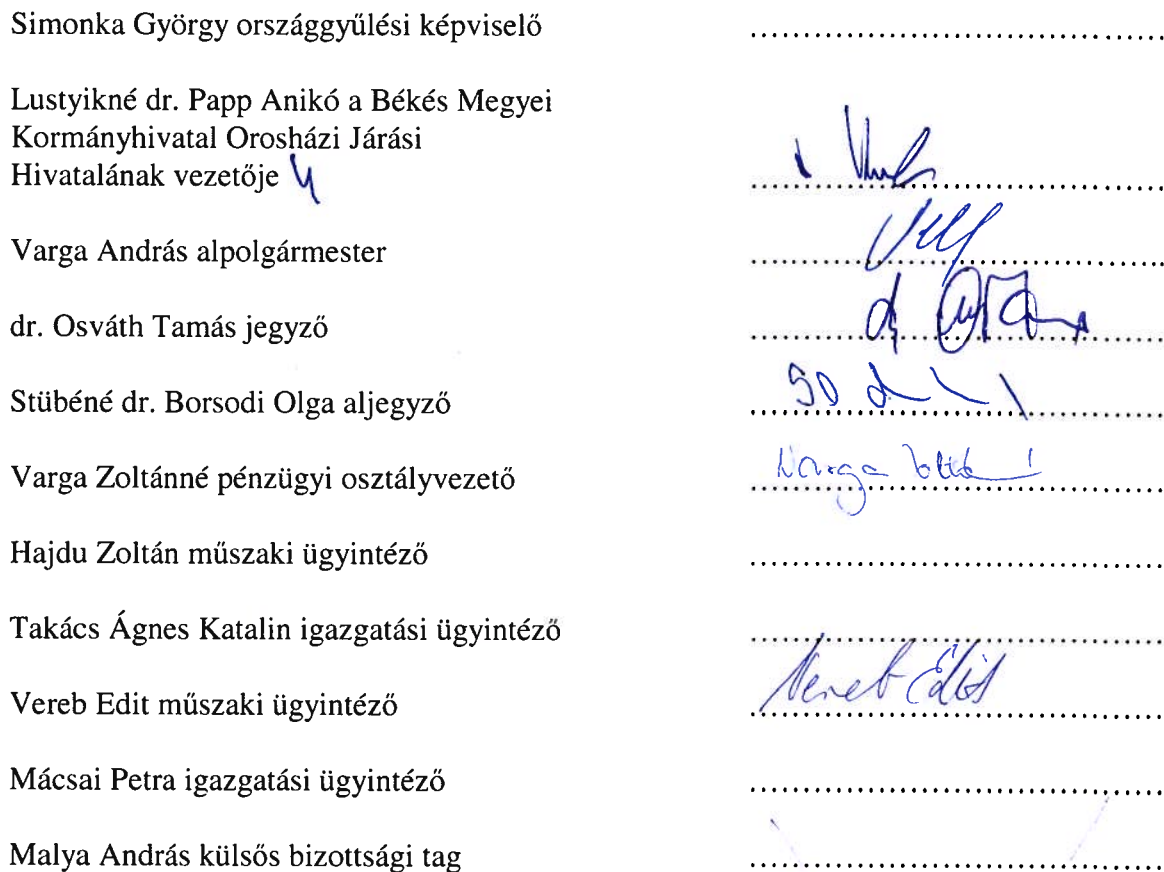 Simonka György országgyűlési képviselő ........................................
Lustyikné dr. Papp Anikó a Békés Megyei
Kormányhivatal Orosházi Járási
Hivatalának vezetője ........................................
Varga András alpolgármester ........................................
dr. Osváth Tamás jegyző ........................................
Stübéné dr. Borsodi Olga aljegyző ........................................
Varga Zoltánné pénzügyi osztályvezető Varga ........................................
Hajdu Zoltán műszaki ügyintéző ........................................
Takács Ágnes Katalin igazgatási ügyintéző ........................................
Vereb Edit műszaki ügyintéző Vereb Edit ........................................
Mácsai Petra igazgatási ügyintéző ........................................
Malya András külsős bizottsági tag ........................................